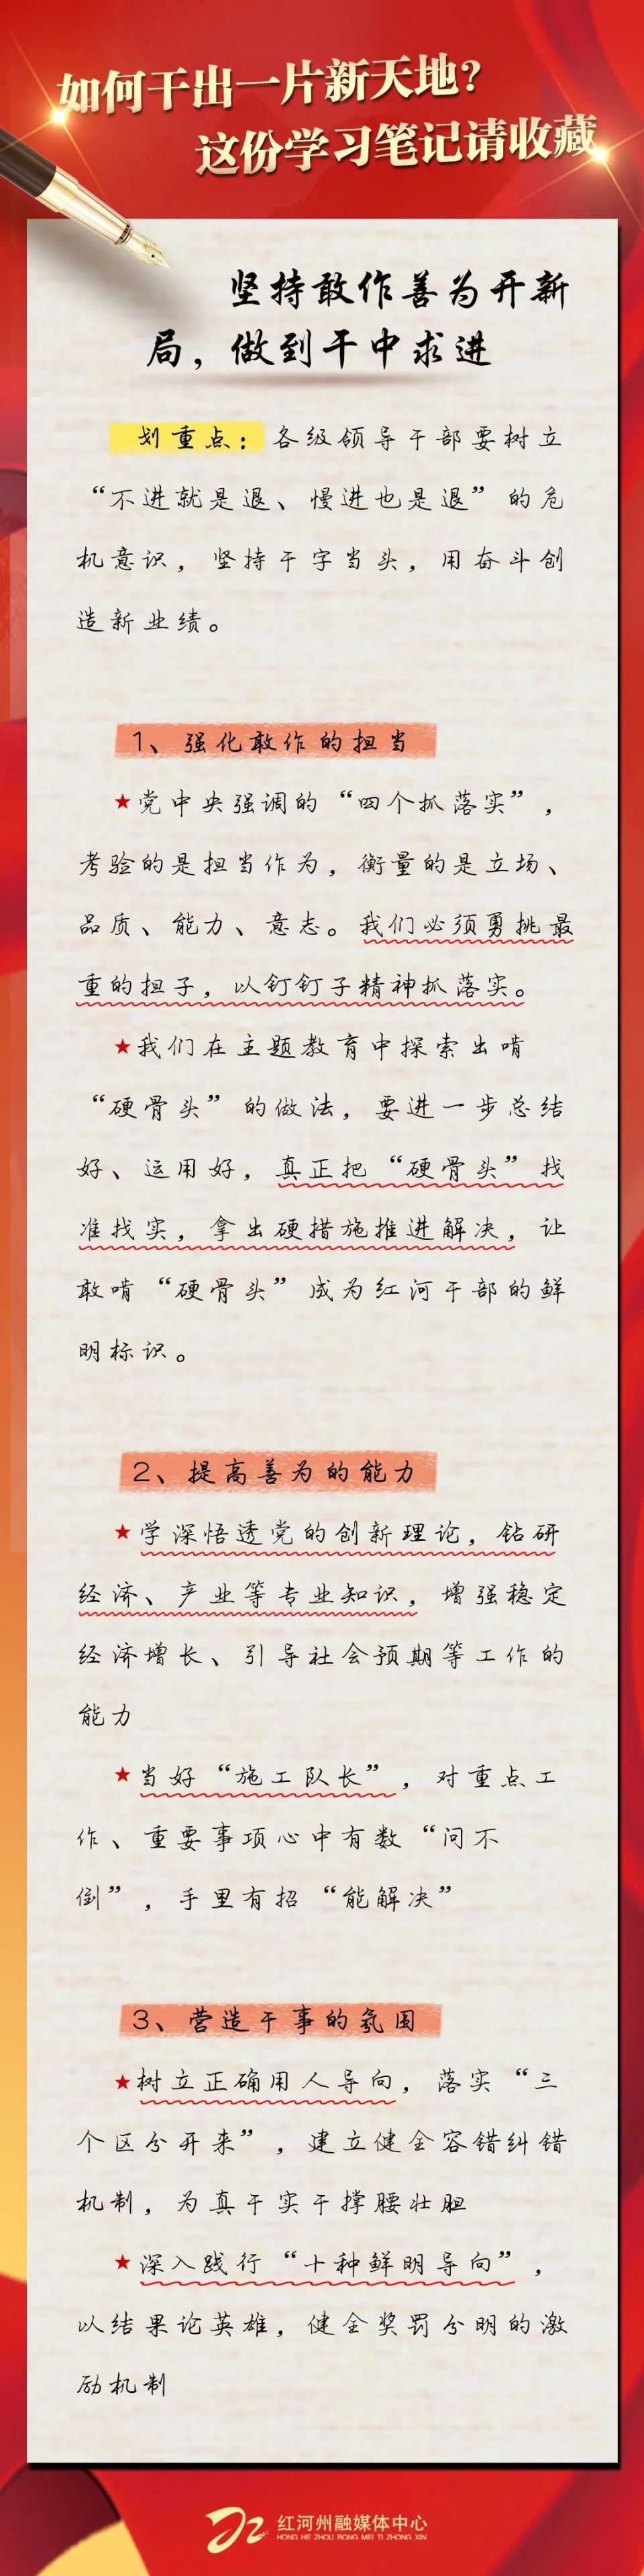 如何干出一片新天地？
这份学习笔记请收藏
坚持敢作善为开新
局，做到干中求进
划重点：各级领导干部要树立
“不进就是退、慢进也是退”的危
机意识，坚持干字当头，用奋斗创
造新业绩。
1、强化敢作的担当
★党中央强调的“四个抓落实”，
考验的是担当作为，衡量的是立场、
品质、能力、意志。我们必须勇挑最
重的担子，以钉钉子精神抓落实。
★我们在主题教育中探索出啃
“硬骨头”的做法，要进一步总结
好、运用好，真正把“硬骨头”找
准找实，拿出硬措施推进解决，让
敢啃“硬骨头”成为红河干部的鲜
明标识。
2、提高善为的能力
★学深悟透党的创新理论，钻研
经济、产业等专业知识，增强稳定
经济增长、引导社会预期等工作的
能力
★当好“施工队长”，对重点工
作、重要事项心中有数“问不
倒”，手里有招“能解决”
3、营造干事的氛围
★树立正确用人导向，落实“三
个区分开来”，建立健全容错纠错
机制，为真干实干撑腰壮胆
★深入践行“十种鲜明导向”，
以结果论英雄，健全奖罚分明的激
励机制
红河州融媒体中心
HONG HE ZHOU RONG MEI TI ZHONG XIN